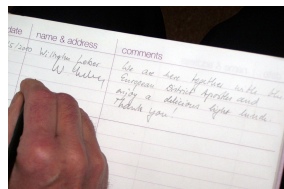 date name & address comments
/5/2010 Wilhelm Leber We are here together with the
W. Leber European District Apostles and
enjoy a delicious light lunch
Thank you!